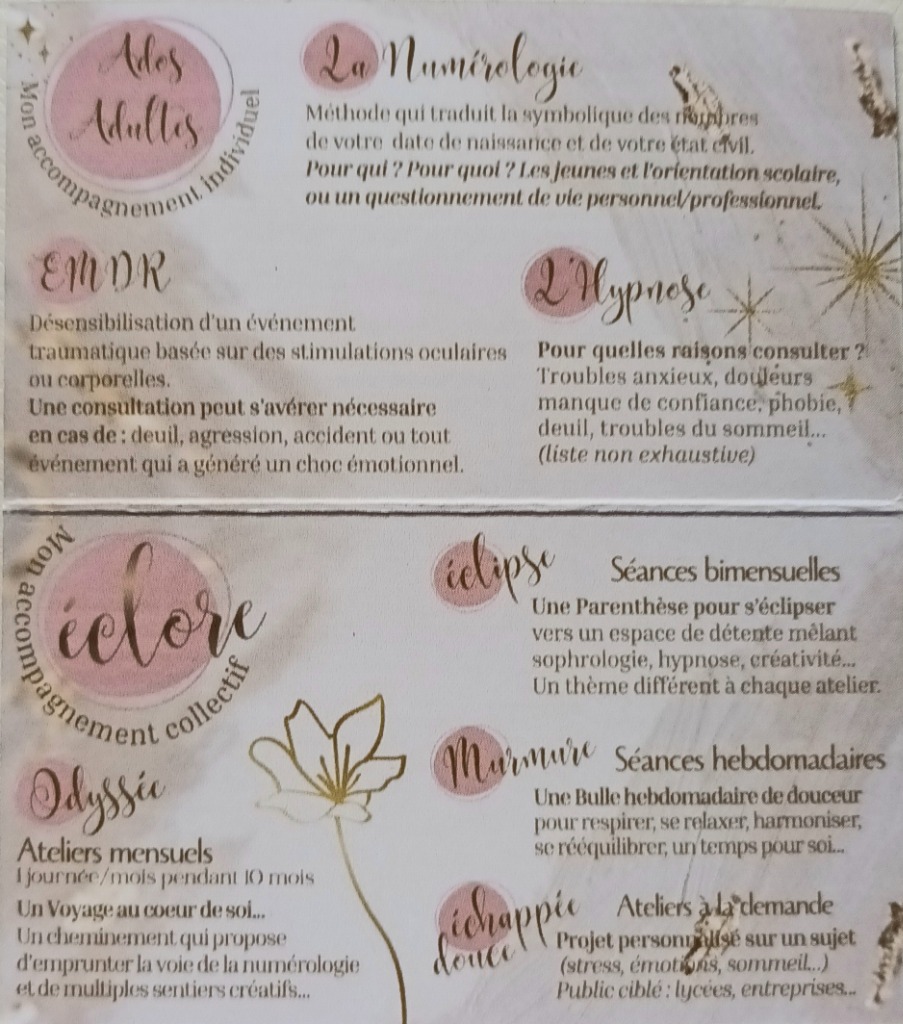 Ados
Adultes
Mon accompagnement individuel
La Numérologie
Méthode qui traduit la symbolique des nombres
de votre date de naissance et de votre état civil.
Pour qui ? Pour quoi ? Les jeunes et l'orientation scolaire,
ou un questionnement de vie personnel/professionnel.
EMDR
Désensibilisation d'un événement
traumatique basée sur des stimulations oculaires
ou corporelles.
Une consultation peut s'avérer nécessaire
en cas de : deuil, agression, accident ou tout
événement qui a généré un choc émotionnel.
L'Hypnose
Pour quelles raisons consulter ?
Troubles anxieux, douleurs
manque de confiance, phobie,
deuil, troubles du sommeil...
(liste non exhaustive)
éclore
Mon accompagnement collectif
éclipse Séances bimensuelles
Une Parenthèse pour s'éclipser
vers un espace de détente mêlant
sophrologie, hypnose, créativité...
Un thème différent à chaque atelier.
Murmure Séances hebdomadaires
Une Bulle hebdomadaire de douceur
pour respirer, se relaxer, harmoniser,
se rééquilibrer, un temps pour soi...
Odyssée
Ateliers mensuels
1 journée/mois pendant 10 mois
Un Voyage au coeur de soi...
Un cheminement qui propose
d'emprunter la voie de la numérologie
et de multiples sentiers créatifs...
échappée
douce
Ateliers à la demande
Projet personnalisé sur un sujet
(stress, émotions, sommeil...)
Public ciblé : lycées, entreprises...